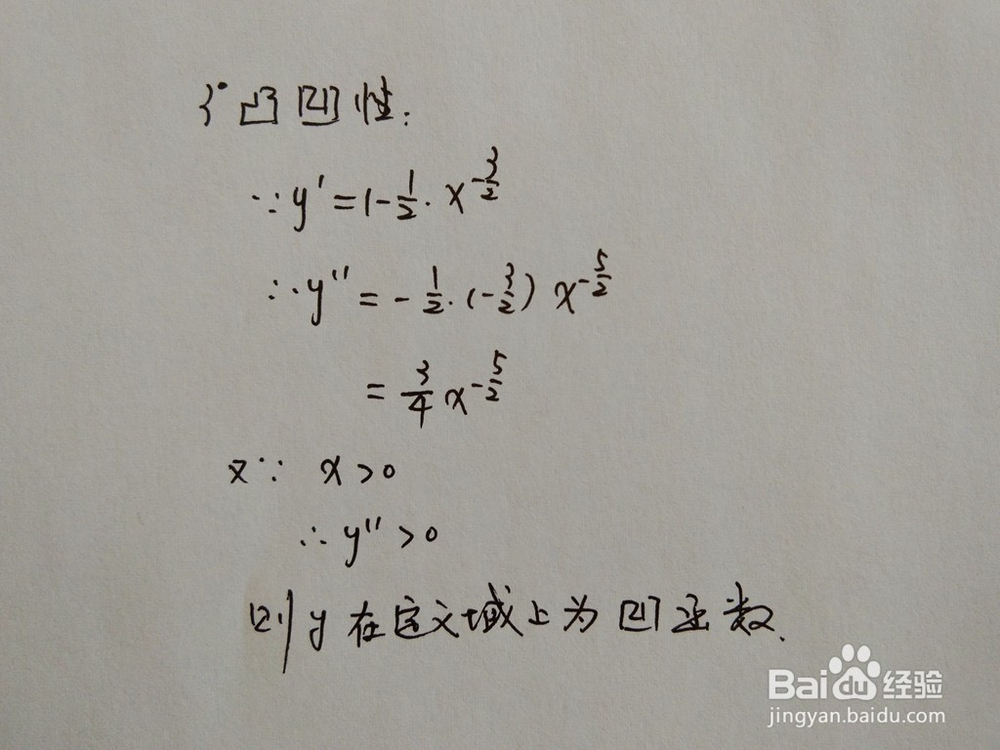 3° 凸凹性:
∵ y' = 1 - 1/2 · x^(-3/2)
∴ y'' = - 1/2 · (-3/2) x^(-5/2)
= 3/4 x^(-5/2)
又∵ x > 0
∴ y'' > 0
则 y 在定义域上为凹函数.
Baidu 经验
jingyan.baidu.com